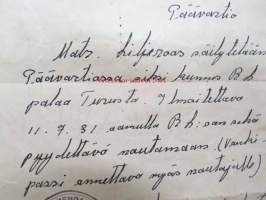 Päävartio
Mats. Liljeroos säilytetään
Päävartiossa siksi kunnes B.h.
palaa Turusta. Ilmoitettava
11.7.31 aamulla B.h:aan sekä
pyydettävä noutamaan. (Vanki-
passi annettava myös noutajalle)